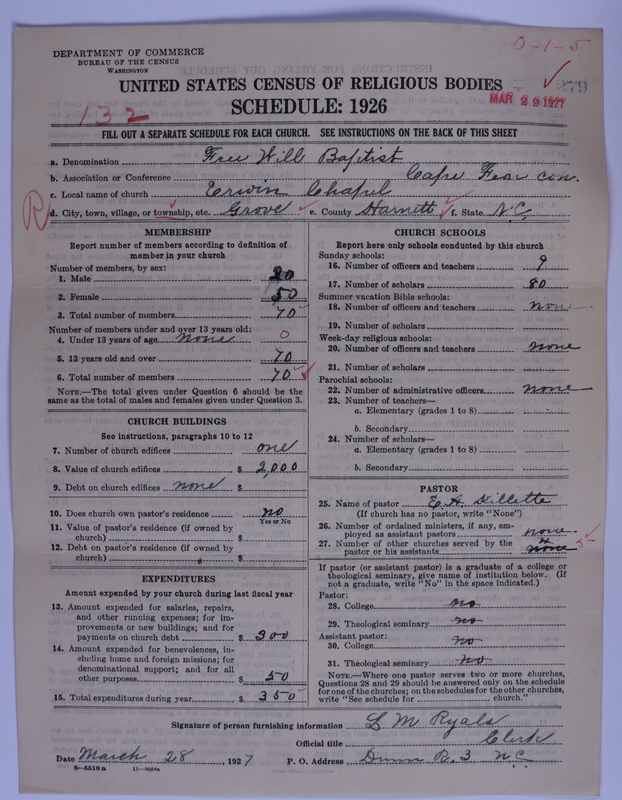 0-1-5
DEPARTMENT OF COMMERCE
BUREAU OF THE CENSUS
WASHINGTON
UNITED STATES CENSUS OF RELIGIOUS BODIES
SCHEDULE: 1926
MAR 29 1927
132
FILL OUT A SEPARATE SCHEDULE FOR EACH CHURCH. SEE INSTRUCTIONS ON THE BACK OF THIS SHEET
a. Denomination Free Will Baptist
b. Association or Conference Cape Fear con.
c. Local name of church Erwin Chapel
d. City, town, village, or township, etc. Grove e. County Harnett f. State N.C.
R
MEMBERSHIP
Report number of members according to definition of
member in your church
Number of members, by sex:
1. Male 20
2. Female 50
3. Total number of members 70
Number of members under and over 13 years old:
4. Under 13 years of age none 0
5. 13 years old and over 70
6. Total number of members 70
NOTE.—The total given under Question 6 should be
same as the total of males and females given under Question 3.
CHURCH BUILDINGS
See instructions, paragraphs 10 to 12
7. Number of church edifices one
8. Value of church edifices $ 2,000
9. Debt on church edifices none $
10. Does church own pastor's residence no
Yes or No
11. Value of pastor's residence (if owned by
church) $
12. Debt on pastor's residence (if owned by
church) $
EXPENDITURES
Amount expended by your church during last fiscal year
13. Amount expended for salaries, repairs,
and other running expenses; for im-
provements or new buildings; and for
payments on church debt $ 300
14. Amount expended for benevolences, in-
cluding home and foreign missions; for
denominational support; and for all
other purposes $ 50
15. Total expenditures during year $ 350
CHURCH SCHOOLS
Report here only schools conducted by this church
Sunday schools:
16. Number of officers and teachers 9
17. Number of scholars 80
Summer vacation Bible schools:
18. Number of officers and teachers none
19. Number of scholars
Week-day religious schools:
20. Number of officers and teachers none
21. Number of scholars
Parochial schools:
22. Number of administrative officers none
23. Number of teachers—
a. Elementary (grades 1 to 8)
b. Secondary
24. Number of scholars—
a. Elementary (grades 1 to 8)
b. Secondary
PASTOR
25. Name of pastor E. H. Killette
(If church has no pastor, write "None")
26. Number of ordained ministers, if any, em-
ployed as assistant pastors none
27. Number of other churches served by the
pastor or his assistants none 5
If pastor (or assistant pastor) is a graduate of a college or
theological seminary, give name of institution below. (If
not a graduate, write "No" in the space indicated.)
Pastor:
28. College no
29. Theological seminary no
Assistant pastor:
30. College no
31. Theological seminary no
NOTE.—Where one pastor serves two or more churches,
Questions 28 and 29 should be answered only on the schedule
for one of the churches; on the schedules for the other churches,
write "See schedule for church."
Signature of person furnishing information L M Ryals
Official title Clerk
Date March 28, 1927 P. O. Address Dunn R.3 N.C.
8—5518a